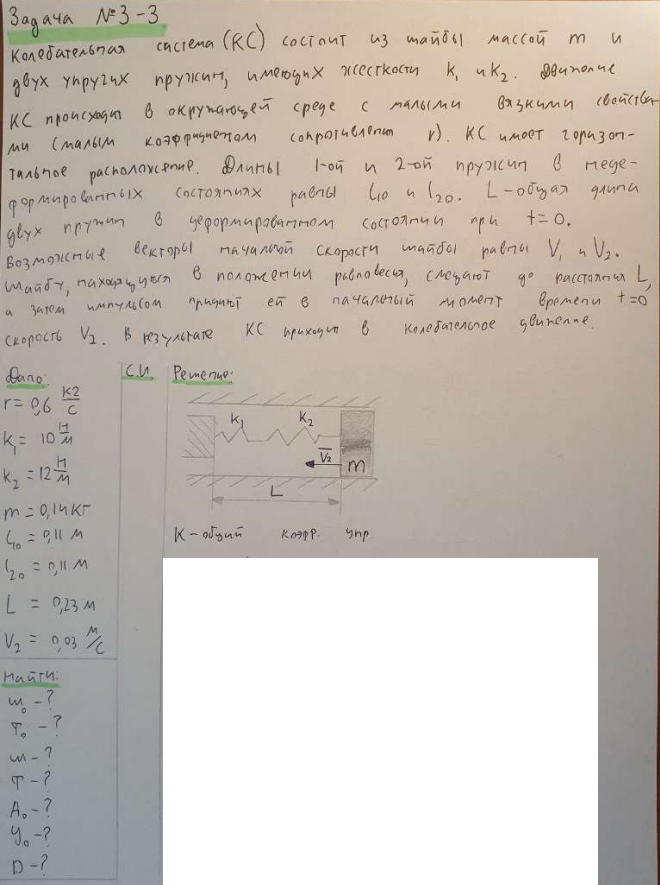 Задача №3-3
Колебательная система (КС) состоит из шайбы массой m и
двух упругих пружин, имеющих жесткости k₁ и k₂. Движение
КС происходит в окружающей среде с малыми вязкими свойства-
ми (малым коэффициентом сопротивления r). КС имеет горизон-
тальное расположение. Длины 1-ой и 2-ой пружин в неде-
формированных состояниях равны l₁₀ и l₂₀. L - общая длина
двух пружин в деформированном состоянии при t = 0.
Возможные векторы начальной скорости шайбы равны V₁ и V₂.
Шайбу, находящуюся в положении равновесия, смещают до расстояния L,
а затем импульсом придают ей в начальный момент времени t=0
скорость V₂. В результате КС приходит в колебательное движение.
Дано:
r = 0,6 кг/с
k₁ = 10 Н/м
k₂ = 12 Н/м
m = 0,14 кг
l₁₀ = 0,11 м
l₂₀ = 0,11 м
L = 0,23 м
V₂ = 0,03 м/с
Найти:
ω₀ - ?
T₀ - ?
ω - ?
T - ?
A₀ - ?
φ₀ - ?
D - ?
С.И.
Решение:
k₁ k₂
V₂
m
L
K - общий коэфф. упр.